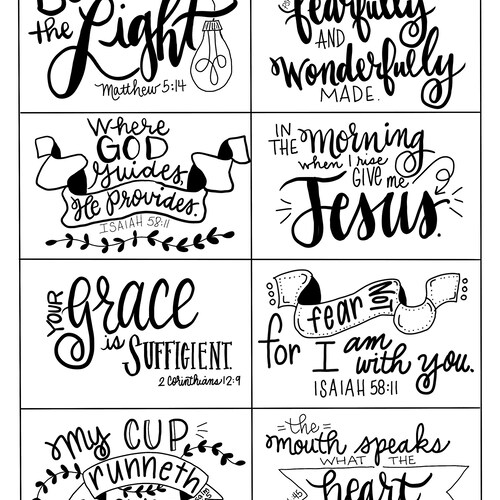 Be
the Light
Matthew 5:14
fearfully
AND
Wonderfully
MADE.
Where
GOD
Guides,
He Provides.
ISAIAH 58:11
IN THE Morning
when I rise
GIVE me
Jesus.
YOUR grace
is SUFFICIENT.
2 Corinthians 12:9
fear NOT
for I am
with you.
ISAIAH 58:11
my CUP
runneth
the
mouth speaks
WHAT THE
heart